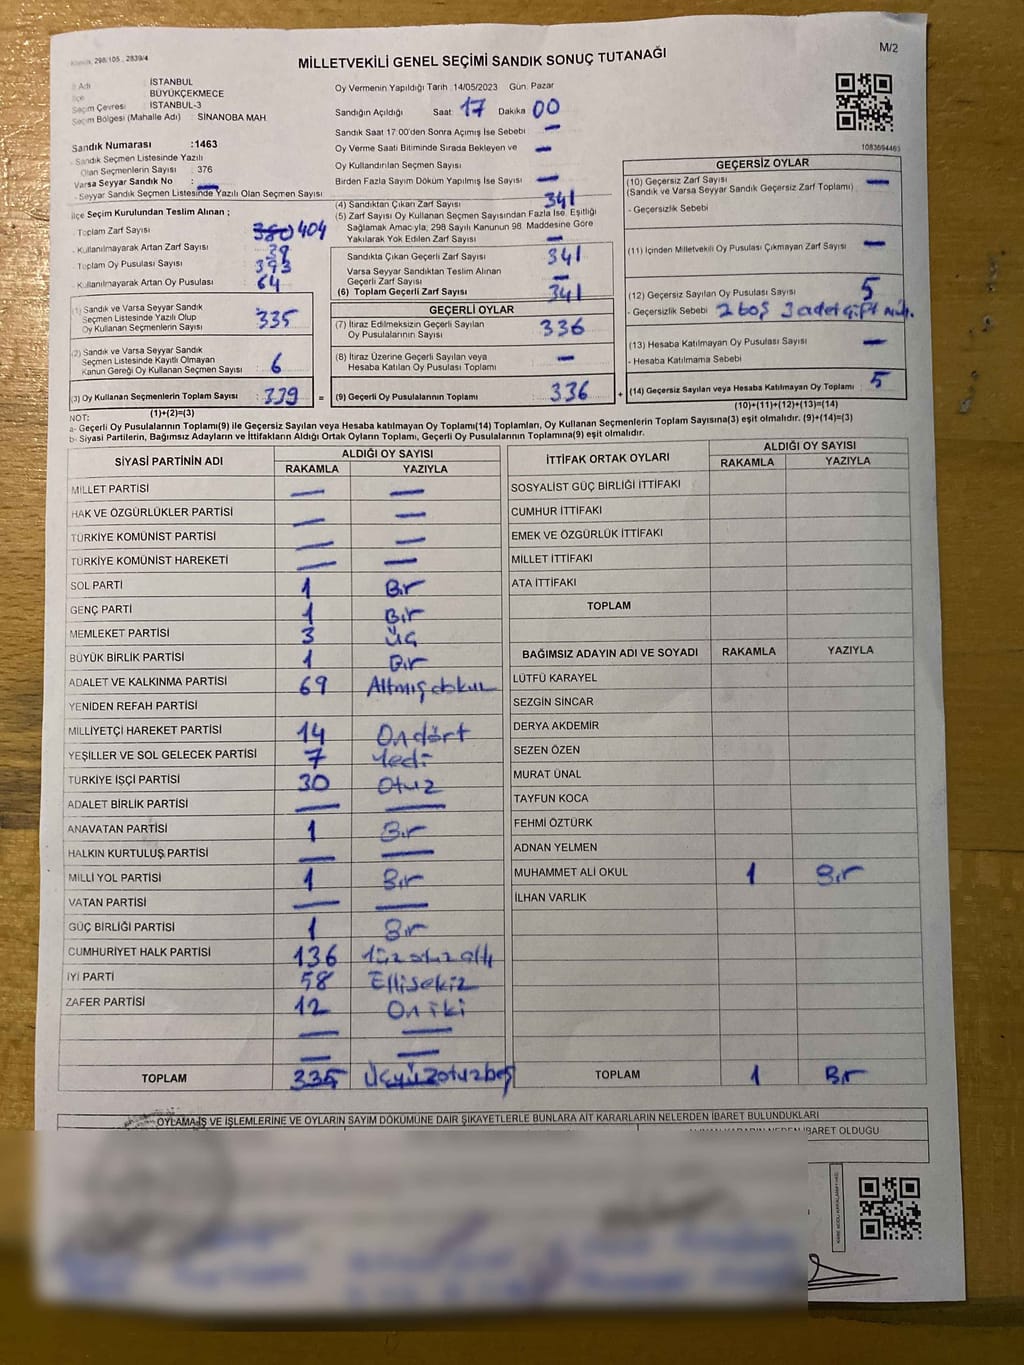 Kanun, 298/105 , 2839/4
M/2
MİLLETVEKİLİ GENEL SEÇİMİ SANDIK SONUÇ TUTANAĞI
İl Adı : İSTANBUL
İlçe : BÜYÜKÇEKMECE
Seçim Çevresi : İSTANBUL-3
Seçim Bölgesi (Mahalle Adı) : SİNANOBA MAH
Sandık Numarası :1463
- Sandık Seçmen Listesinde Yazılı
Olan Seçmenlerin Sayısı : 376
Varsa Seyyar Sandık No : —
- Seyyar Sandık Seçmen Listesinde Yazılı Olan Seçmen Sayısı
İlçe Seçim Kurulundan Teslim Alınan ;
- Toplam Zarf Sayısı : 380 404
- Kullanılmayarak Artan Zarf Sayısı :
- Toplam Oy Pusulası Sayısı : 393
- Kullanılmayarak Artan Oy Pusulası : 64
(1) Sandık ve Varsa Seyyar Sandık
Seçmen Listesinde Yazılı Olup
Oy Kullanan Seçmenlerin Sayısı : 335
(2) Sandık ve Varsa Seyyar Sandık
Seçmen Listesinde Kayıtlı Olmayan
Kanun Gereği Oy Kullanan Seçmen Sayısı : 6
(3) Oy Kullanan Seçmenlerin Toplam Sayısı : =
(1)+(2)=(3)
Oy Vermenin Yapıldığı Tarih :14/05/2023 Gün: Pazar
Sandığın Açıldığı Saat: 17 Dakika 00
Sandık Saat 17:00'den Sonra Açımış İse Sebebi —
Oy Verme Saati Bitiminde Sırada Bekleyen ve —
Oy Kullandırılan Seçmen Sayısı
Birden Fazla Sayım Döküm Yapılmış İse Sayısı —
(4) Sandıktan Çıkan Zarf Sayısı 341
(5) Zarf Sayısı Oy Kullanan Seçmen Sayısından Fazla İse, Eşitliği
Sağlamak Amacıyla; 298 Sayılı Kanunun 98. Maddesine Göre
Yakılarak Yok Edilen Zarf Sayısı —
Sandıkta Çıkan Geçerli Zarf Sayısı 341
Varsa Seyyar Sandıktan Teslim Alınan
Geçerli Zarf Sayısı —
(6) Toplam Geçerli Zarf Sayısı 341
GEÇERLİ OYLAR
(7) İtiraz Edilmeksizin Geçerli Sayılan
Oy Pusulalarının Sayısı : 336
(8) İtiraz Üzerine Geçerli Sayılan veya
Hesaba Katılan Oy Pusulası Toplamı : —
(9) Geçerli Oy Pusulalarının Toplamı : 336 +
1083694463
GEÇERSİZ OYLAR
(10) Geçersiz Zarf Sayısı —
(Sandık ve Varsa Seyyar Sandık Geçersiz Zarf Toplamı)
- Geçersizlik Sebebi
(11) İçinden Milletvekili Oy Pusulası Çıkmayan Zarf Sayısı —
(12) Geçersiz Sayılan Oy Pusulası Sayısı 5
- Geçersizlik Sebebi 2 boş 3 adet çift müh.
(13) Hesaba Katılmayan Oy Pusulası Sayısı —
- Hesaba Katılmama Sebebi
(14) Geçersiz Sayılan veya Hesaba Katılmayan Oy Toplamı : 5
(10)+(11)+(12)+(13)=(14)
NOT:
a- Geçerli Oy Pusulalarının Toplamı(9) ile Geçersiz Sayılan veya Hesaba katılmayan Oy Toplamı(14) Toplamları, Oy Kullanan Seçmenlerin Toplam Sayısına(3) eşit olmalıdır. (9)+(14)=(3)
b- Siyasi Partilerin, Bağımsız Adayların ve İttifakların Aldığı Ortak Oyların Toplamı, Geçerli Oy Pusulalarının Toplamına(9) eşit olmalıdır.
SİYASİ PARTİNİN ADI ALDIĞI OY SAYISI
RAKAMLA YAZIYLA
MİLLET PARTİSİ — —
HAK VE ÖZGÜRLÜKLER PARTİSİ — —
TÜRKİYE KOMÜNİST PARTİSİ — —
TÜRKİYE KOMÜNİST HAREKETİ — —
SOL PARTİ 1 Bir
GENÇ PARTİ 1 Bir
MEMLEKET PARTİSİ 3 Üç
BÜYÜK BİRLİK PARTİSİ 1 Bir
ADALET VE KALKINMA PARTİSİ 69 Altmışdokuz
YENİDEN REFAH PARTİSİ
MİLLİYETÇİ HAREKET PARTİSİ 14 Ondört
YEŞİLLER VE SOL GELECEK PARTİSİ 7 Yedi
TÜRKİYE İŞÇİ PARTİSİ 30 Otuz
ADALET BİRLİK PARTİSİ — —
ANAVATAN PARTİSİ 1 Bir
HALKIN KURTULUŞ PARTİSİ — —
MİLLİ YOL PARTİSİ 1 Bir
VATAN PARTİSİ — —
GÜÇ BİRLİĞİ PARTİSİ 1 Bir
CUMHURİYET HALK PARTİSİ 136 Yüzotuzaltı
İYİ PARTİ 58 Ellisekiz
ZAFER PARTİSİ 12 Oniki
— —
— —
TOPLAM 335 Üçyüzotuzbeş
İTTİFAK ORTAK OYLARI ALDIĞI OY SAYISI
RAKAMLA YAZIYLA
SOSYALİST GÜÇ BİRLİĞİ İTTİFAKI
CUMHUR İTTİFAKI
EMEK VE ÖZGÜRLÜK İTTİFAKI
MİLLET İTTİFAKI
ATA İTTİFAKI
TOPLAM
BAĞIMSIZ ADAYIN ADI VE SOYADI RAKAMLA YAZIYLA
LÜTFÜ KARAYEL
SEZGİN SİNCAR
DERYA AKDEMİR
SEZEN ÖZEN
MURAT ÜNAL
TAYFUN KOCA
FEHMİ ÖZTÜRK
ADNAN YELMEN
MUHAMMET ALİ OKUL 1 Bir
İLHAN VARLIK
TOPLAM 1 Bir
OYLAMA İŞ VE İŞLEMLERİNE VE OYLARIN SAYIM DÖKÜMÜNE DAİR ŞİKAYETLERLE BUNLARA AİT KARARLARIN NELERDEN İBARET BULUNDUKLARI
İBARET OLDUĞU